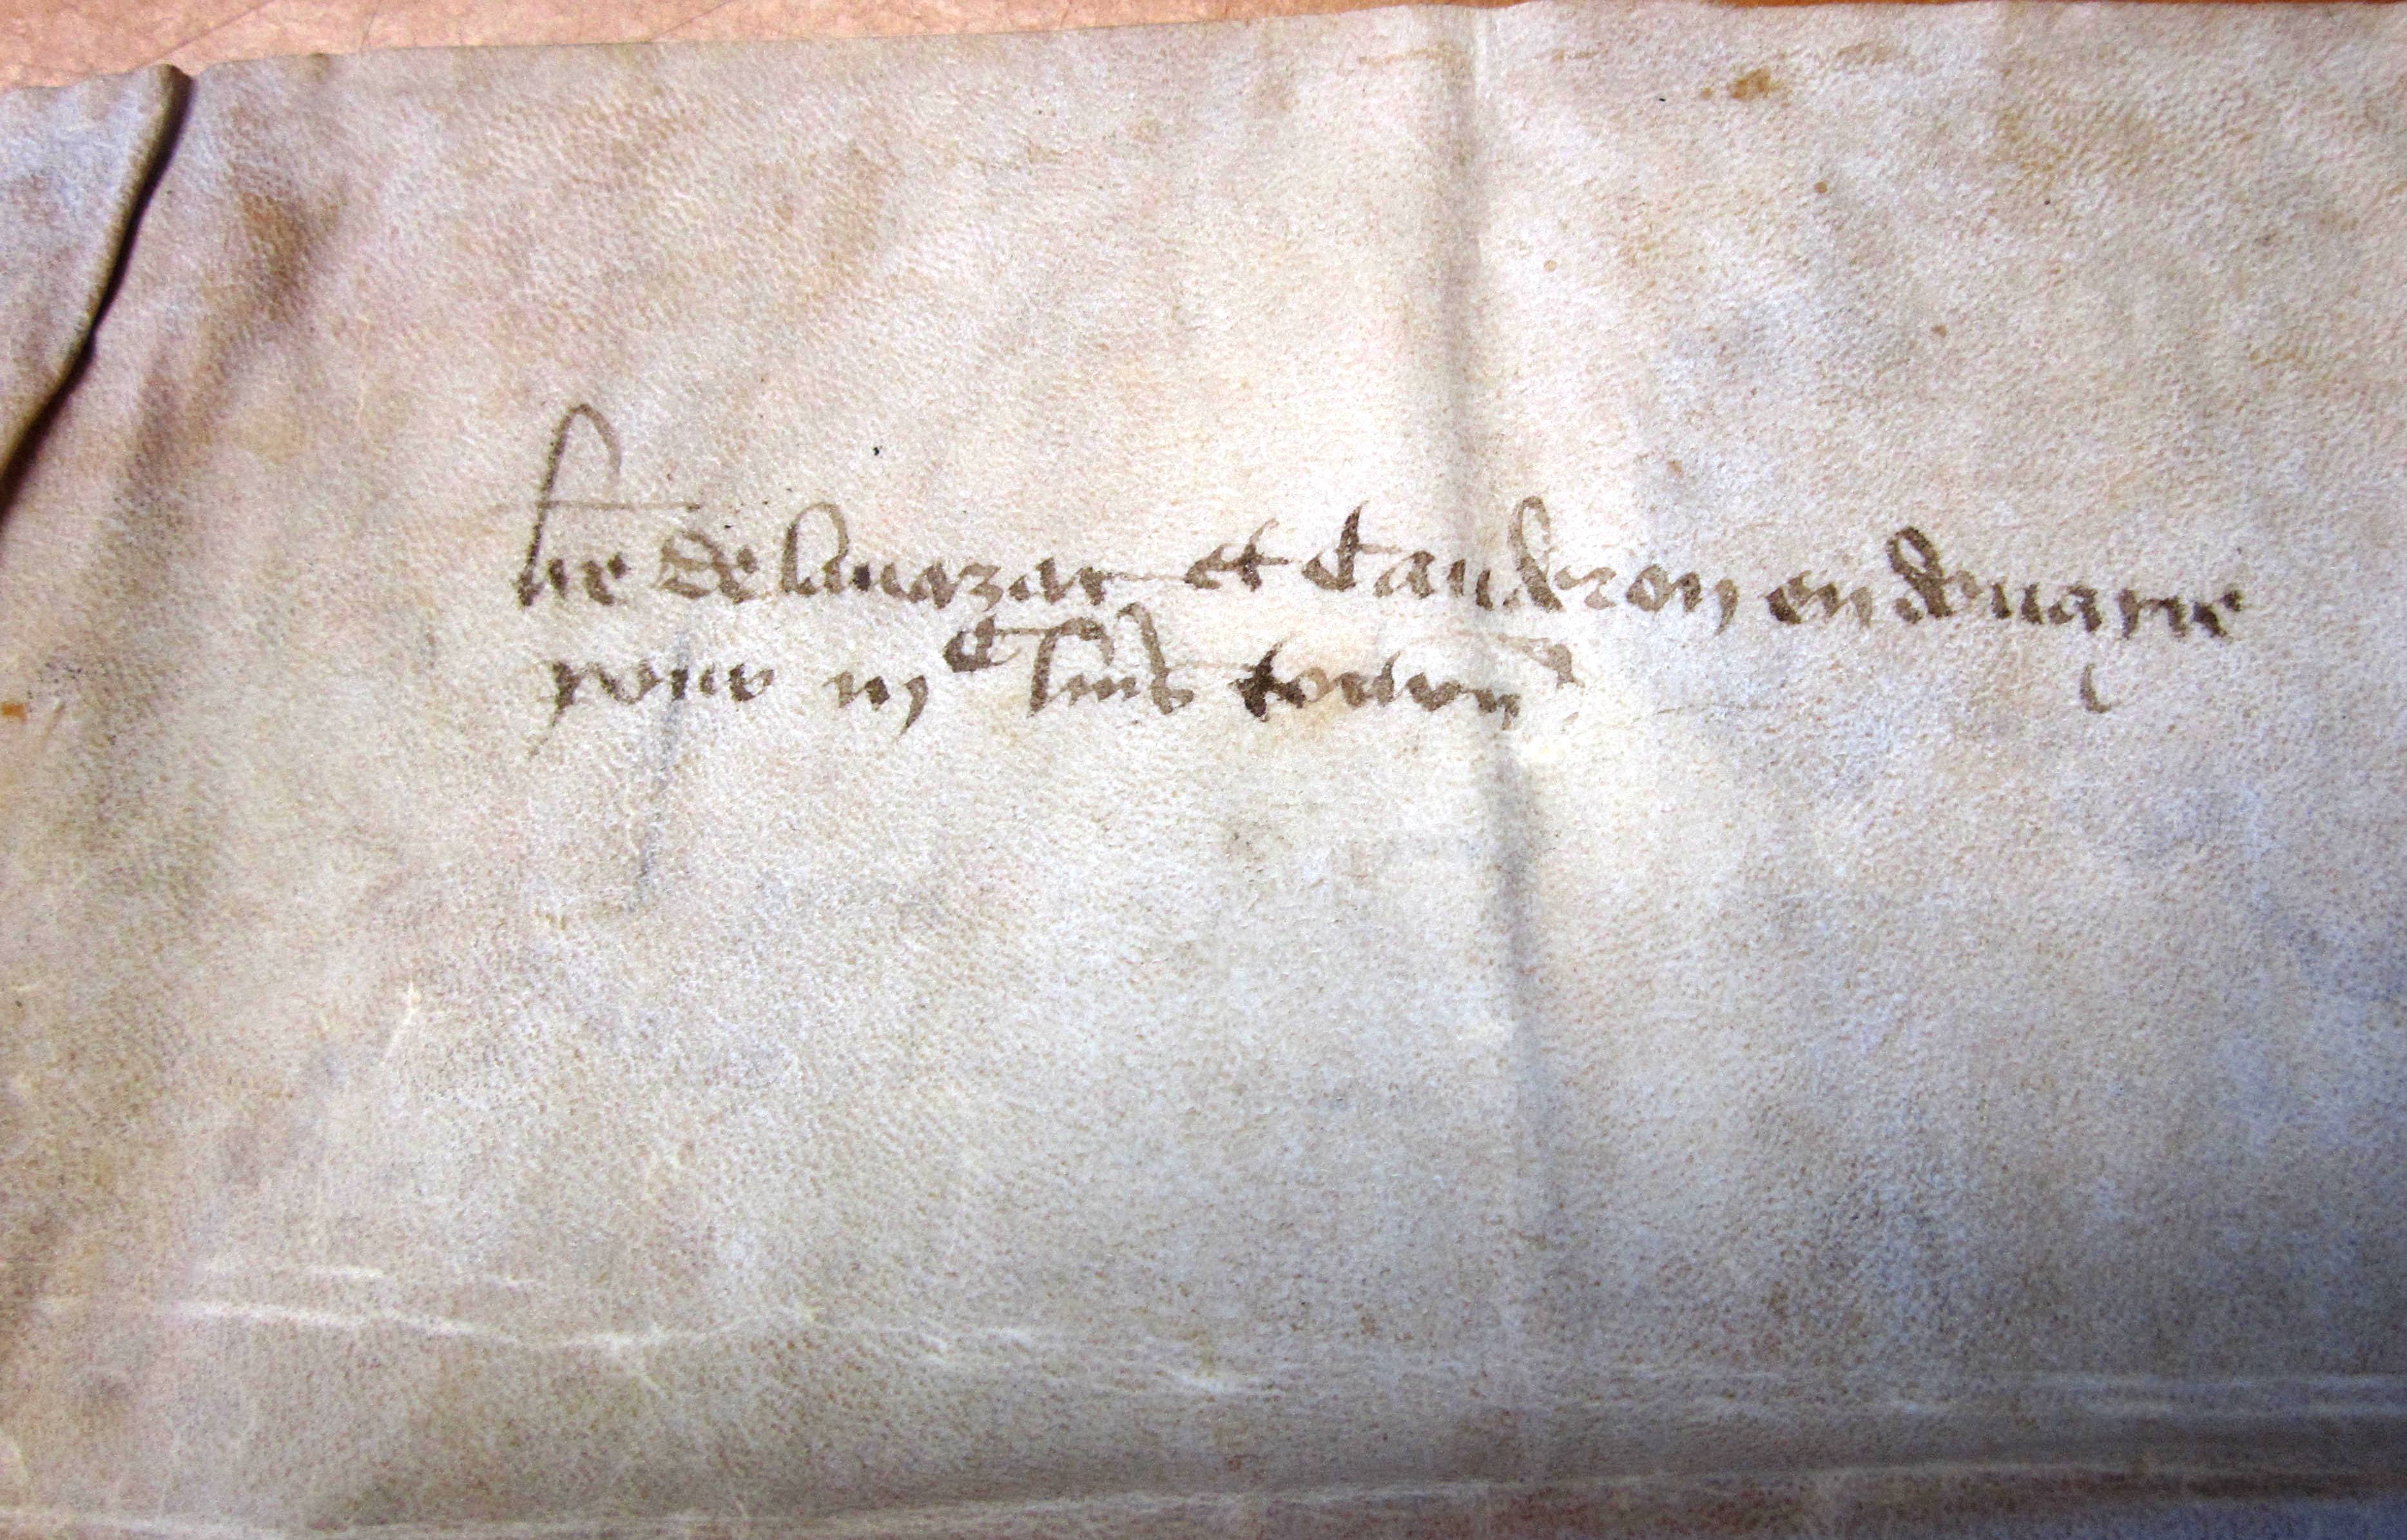 lre de lauazar et Caudron en douayre
pour iijC livrs tourn